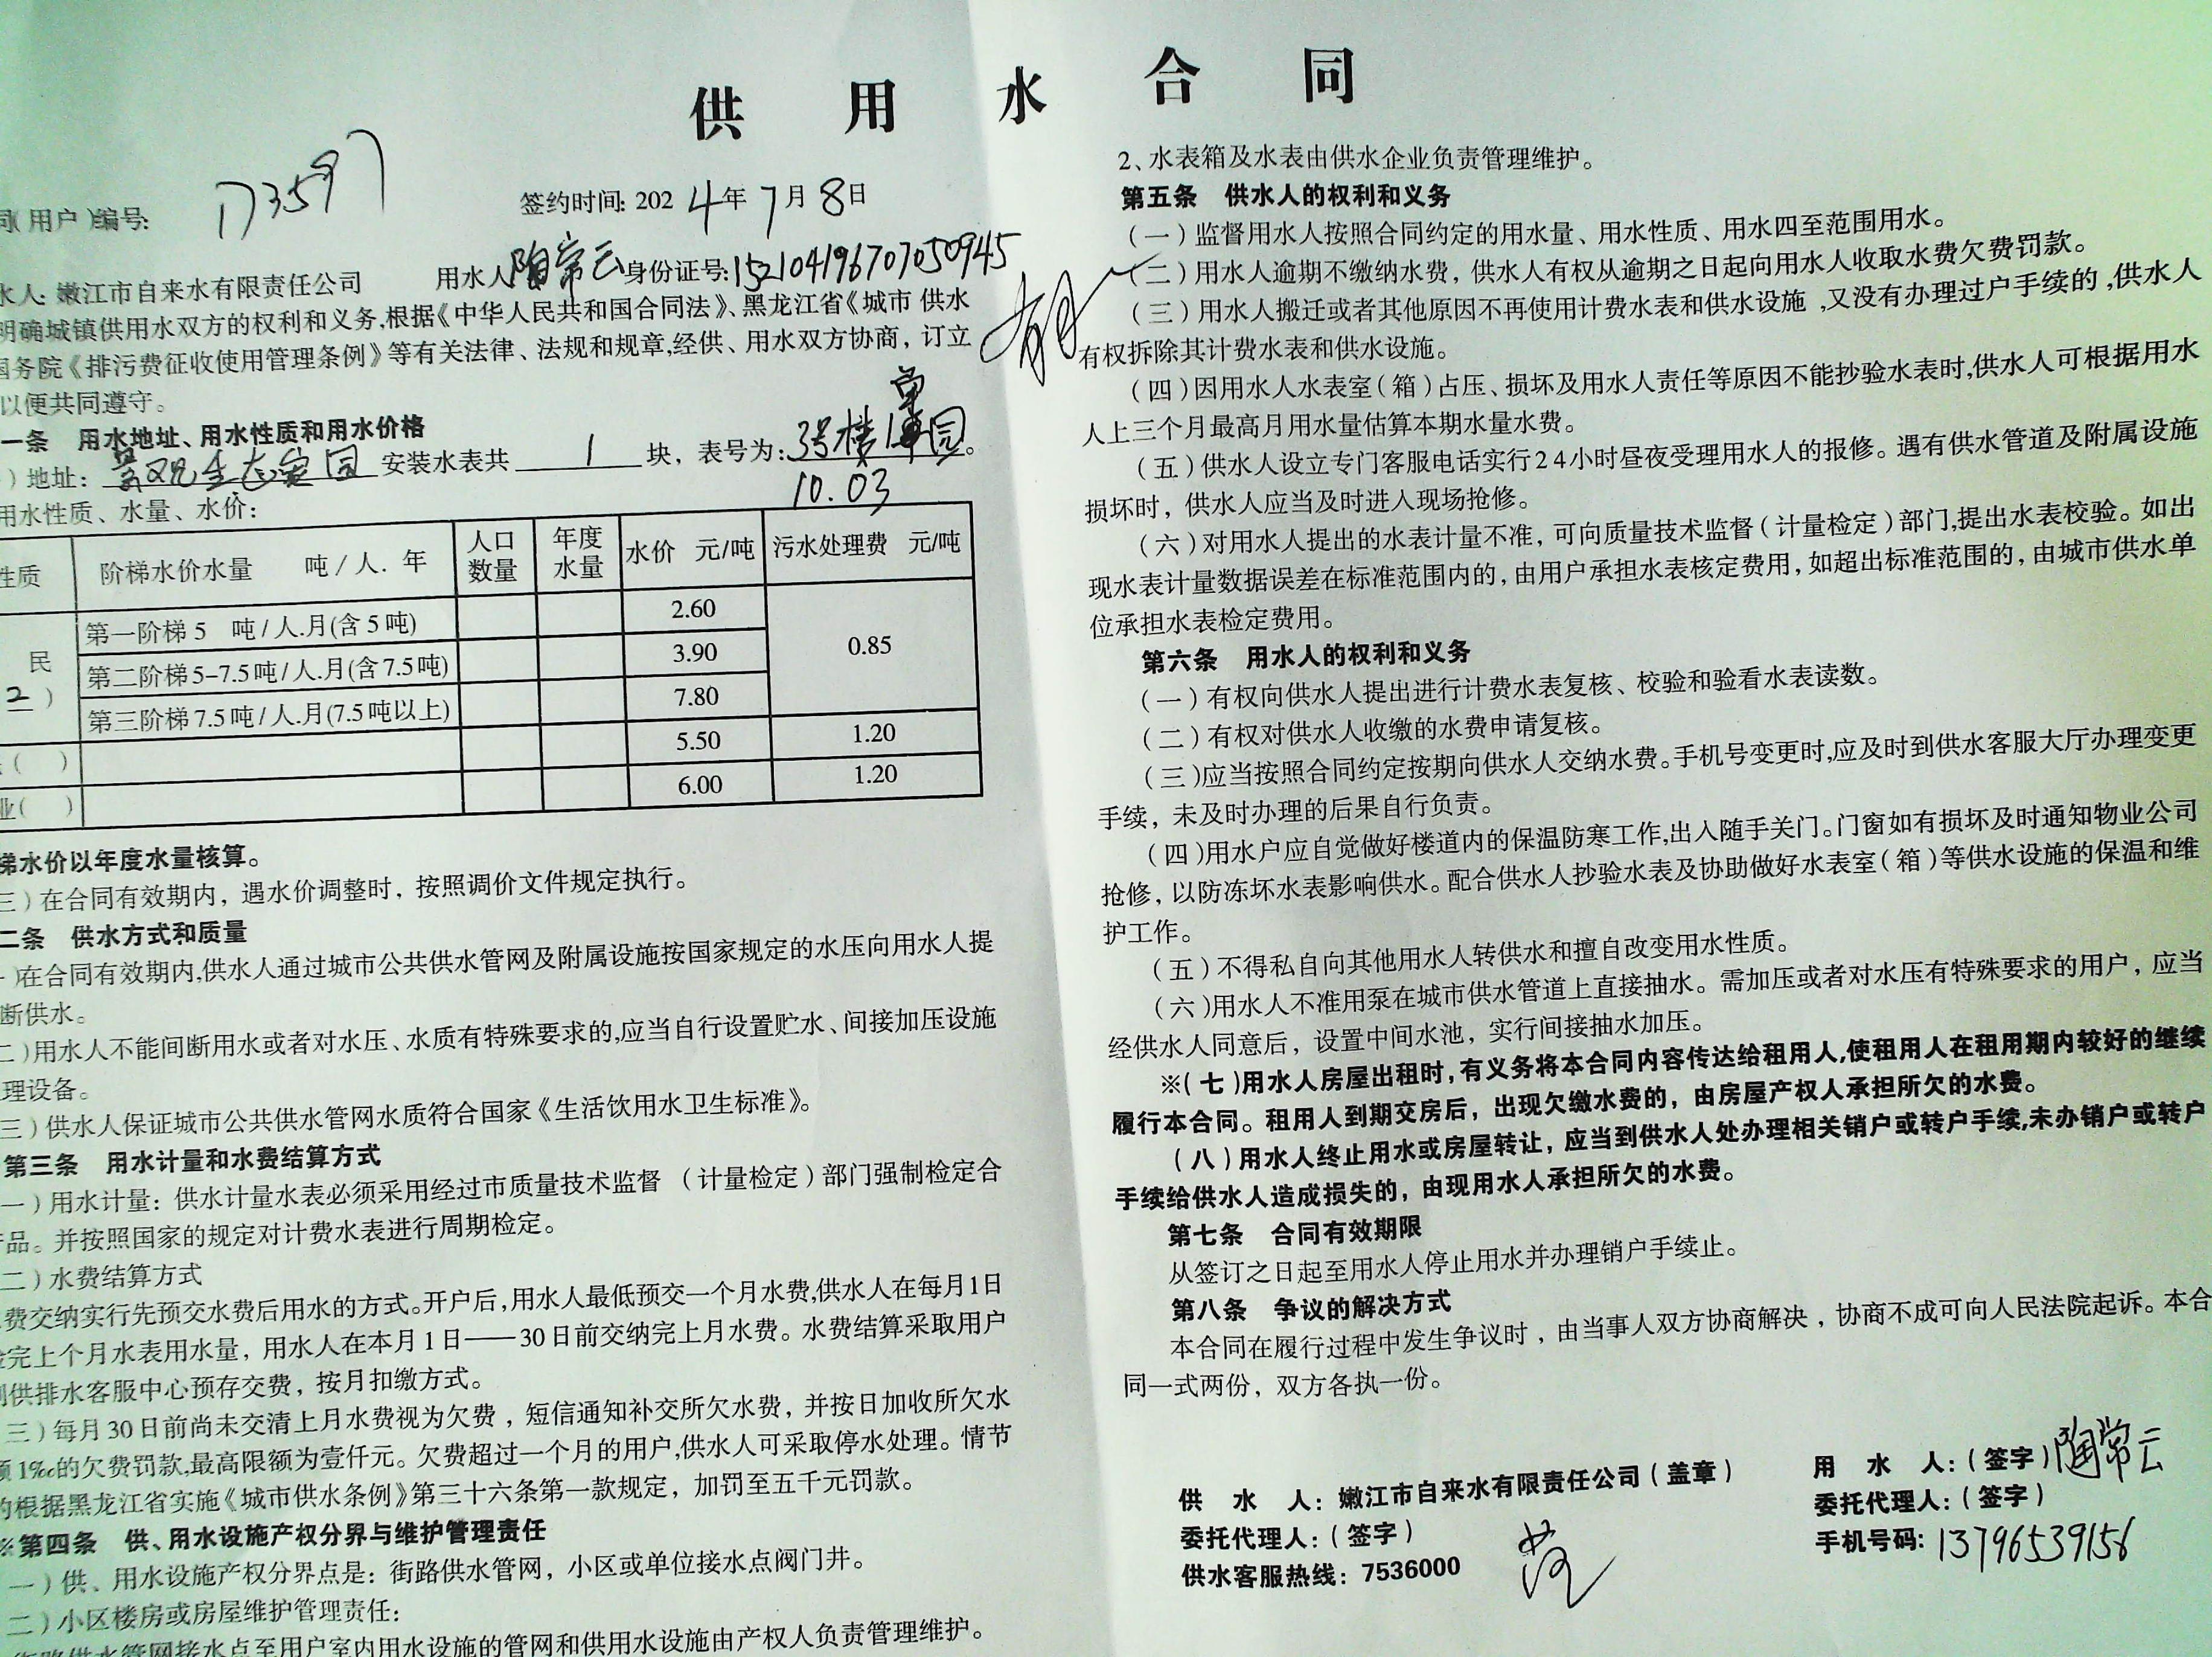 供用水合同
同(用户)编号: 173597
签约时间: 2024年7月8日
水人: 嫩江市自来水有限责任公司 用水人 陶常云 身份证号: 152104196707050945
明确城镇供用水双方的权利和义务,根据《中华人民共和国合同法》、黑龙江省《城市 供水
国务院《排污费征收使用管理条例》等有关法律、法规和规章,经供、用水双方协商，订立
以便共同遵守。
一条 用水地址、用水性质和用水价格
)地址: 景观生态家园 安装水表共 1 块，表号为: 3号楼1单元。
10.03
用水性质、水量、水价:
性质 阶梯水价水量 吨/人. 年 人口数量 年度水量 水价 元/吨 污水处理费 元/吨
民 第一阶梯 5 吨/人.月(含 5 吨) 2.60 0.85
2 ) 第二阶梯 5-7.5吨/人.月(含 7.5 吨) 3.90
第三阶梯 7.5 吨/人.月(7.5 吨以上) 7.80
( ) 5.50 1.20
业( ) 6.00 1.20
梯水价以年度水量核算。
三)在合同有效期内，遇水价调整时，按照调价文件规定执行。
二条 供水方式和质量
)在合同有效期内,供水人通过城市公共供水管网及附属设施按国家规定的水压向用水人提
断供水。
二)用水人不能间断用水或者对水压、水质有特殊要求的,应当自行设置贮水、间接加压设施
理设备。
三)供水人保证城市公共供水管网水质符合国家《生活饮用水卫生标准》。
第三条 用水计量和水费结算方式
一)用水计量：供水计量水表必须采用经过市质量技术监督 (计量检定)部门强制检定合
品。并按照国家的规定对计费水表进行周期检定。
二)水费结算方式
费交纳实行先预交水费后用水的方式。开户后,用水人最低预交一个月水费,供水人在每月1日
完上个月水表用水量，用水人在本月 1 日——30 日前交纳完上月水费。水费结算采取用户
到供排水客服中心预存交费，按月扣缴方式。
三)每月 30 日前尚未交清上月水费视为欠费，短信通知补交所欠水费，并按日加收所欠水
额 1‰的欠费罚款,最高限额为壹仟元。欠费超过一个月的用户,供水人可采取停水处理。情节
的根据黑龙江省实施《城市供水条例》第三十六条第一款规定，加罚至五千元罚款。
※第四条 供、用水设施产权分界与维护管理责任
一)供、用水设施产权分界点是：街路供水管网，小区或单位接水点阀门井。
二)小区楼房或房屋维护管理责任:
街路供水管网接水点至用户室内用水设施的管网和供用水设施由产权人负责管理维护。
2、水表箱及水表由供水企业负责管理维护。
第五条 供水人的权利和义务
(一)监督用水人按照合同约定的用水量、用水性质、用水四至范围用水。
(二)用水人逾期不缴纳水费，供水人有权从逾期之日起向用水人收取水费欠费罚款。
(三)用水人搬迁或者其他原因不再使用计费水表和供水设施,又没有办理过户手续的,供水人
有权拆除其计费水表和供水设施。
(四)因用水人水表室(箱)占压、损坏及用水人责任等原因不能抄验水表时,供水人可根据用水
人上三个月最高月用水量估算本期水量水费。
(五)供水人设立专门客服电话实行24小时昼夜受理用水人的报修。遇有供水管道及附属设施
损坏时，供水人应当及时进入现场抢修。
(六)对用水人提出的水表计量不准，可向质量技术监督(计量检定)部门,提出水表校验。如出
现水表计量数据误差在标准范围内的，由用户承担水表核定费用，如超出标准范围的，由城市供水单
位承担水表检定费用。
第六条 用水人的权利和义务
(一)有权向供水人提出进行计费水表复核、校验和验看水表读数。
(二)有权对供水人收缴的水费申请复核。
(三)应当按照合同约定按期向供水人交纳水费。手机号变更时,应及时到供水客服大厅办理变更
手续，未及时办理的后果自行负责。
(四)用水户应自觉做好楼道内的保温防寒工作,出入随手关门。门窗如有损坏及时通知物业公司
抢修，以防冻坏水表影响供水。配合供水人抄验水表及协助做好水表室(箱)等供水设施的保温和维
护工作。
(五)不得私自向其他用水人转供水和擅自改变用水性质。
(六)用水人不准用泵在城市供水管道上直接抽水。需加压或者对水压有特殊要求的用户，应当
经供水人同意后，设置中间水池，实行间接抽水加压。
※(七)用水人房屋出租时,有义务将本合同内容传达给租用人,使租用人在租用期内较好的继续
履行本合同。租用人到期交房后，出现欠缴水费的，由房屋产权人承担所欠的水费。
(八)用水人终止用水或房屋转让，应当到供水人处办理相关销户或转户手续,未办销户或转户
手续给供水人造成损失的，由现用水人承担所欠的水费。
第七条 合同有效期限
从签订之日起至用水人停止用水并办理销户手续止。
第八条 争议的解决方式
本合同在履行过程中发生争议时，由当事人双方协商解决，协商不成可向人民法院起诉。本合
同一式两份，双方各执一份。
供 水 人：嫩江市自来水有限责任公司(盖章)
委托代理人：(签字)
供水客服热线：7536000
用 水 人：(签字) 陶常云
委托代理人：(签字)
手机号码: 13796539156